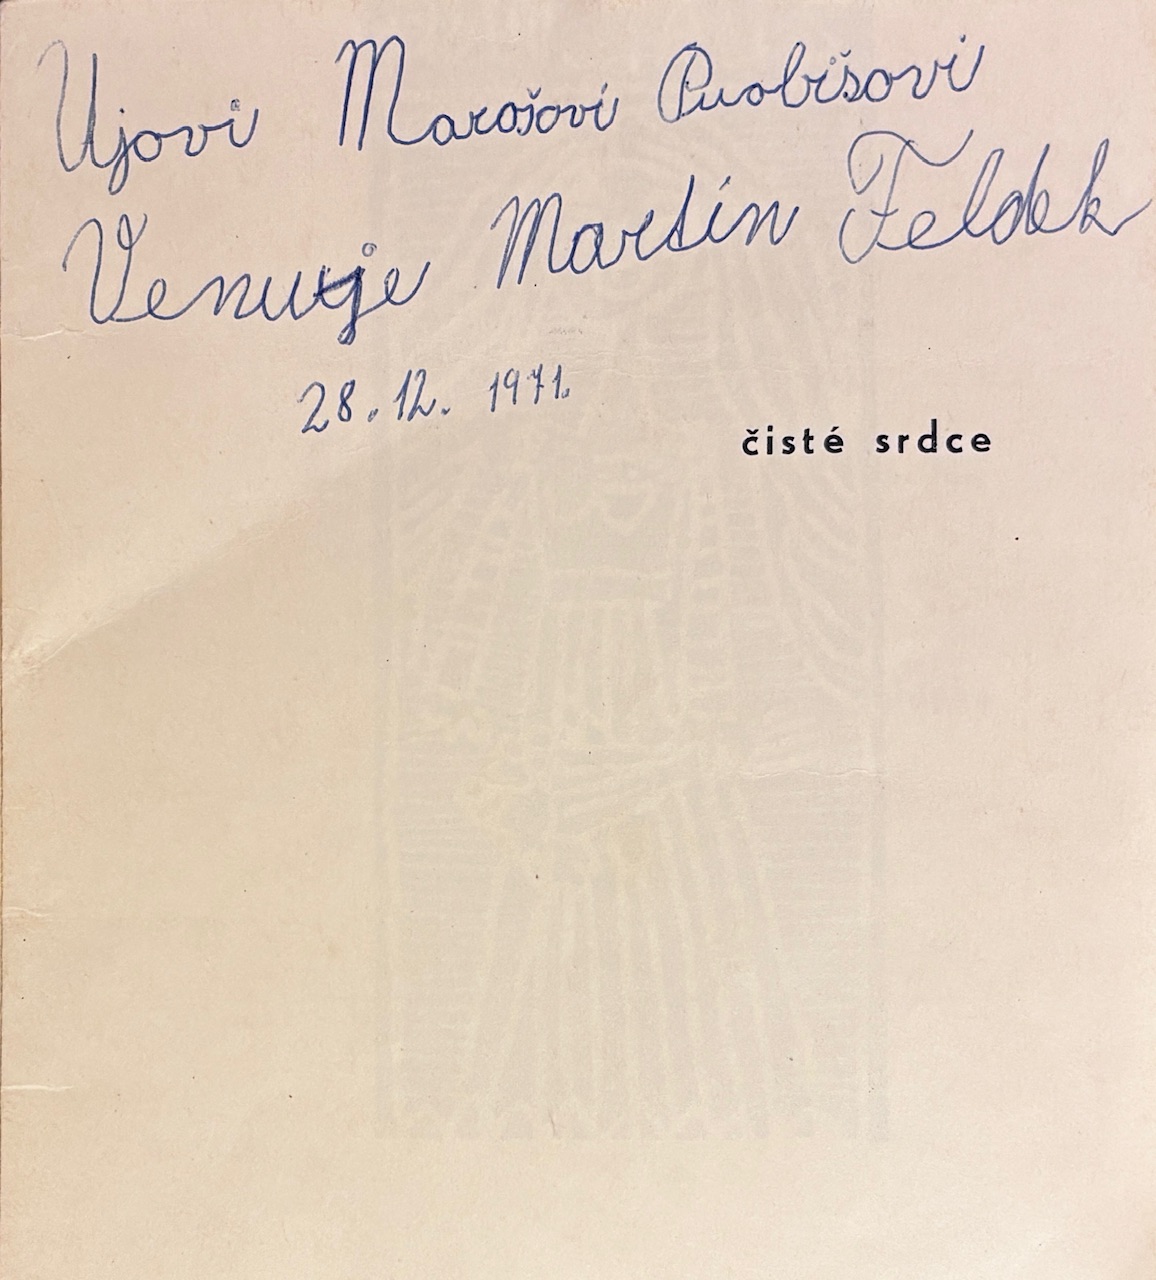 Ujovi Marošovi Puobišovi
Venuje Martin Feldek
28. 12. 1971.
čisté srdce